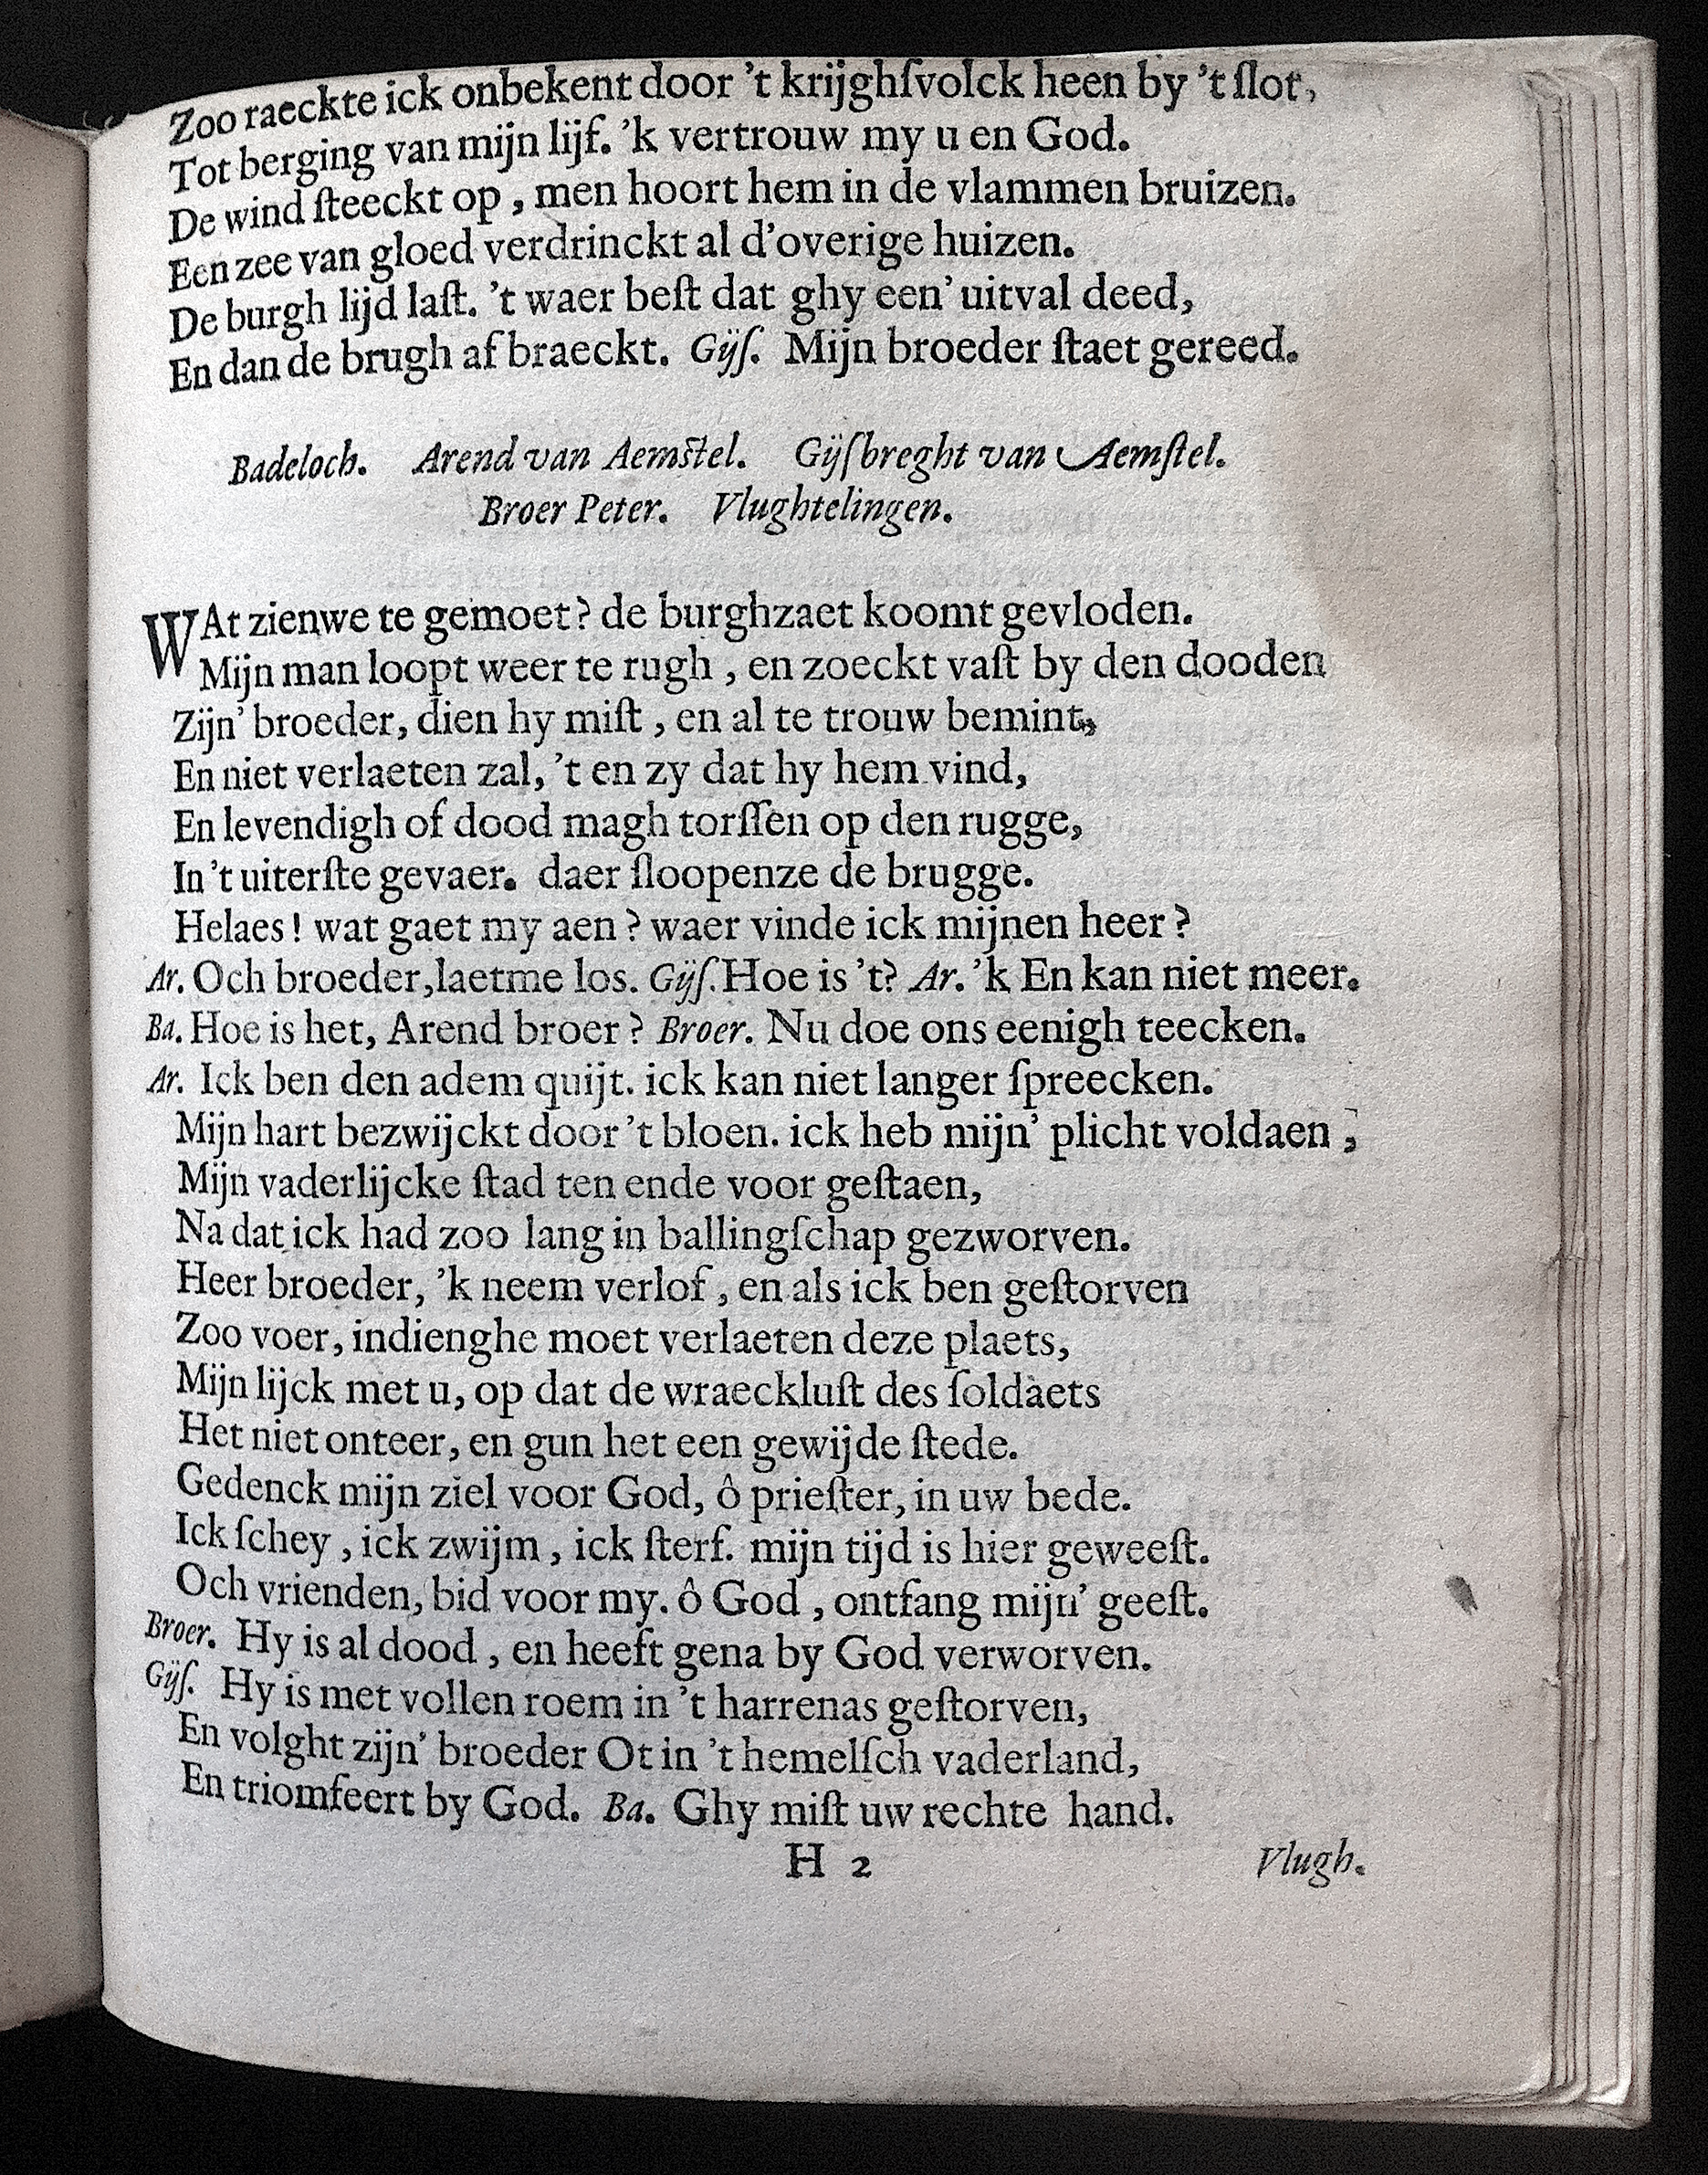 Zoo raeckte ick onbekent door 't krijghſvolck heen by 't ſlot,
Tot berging van mijn lijf. 'k vertrouw my u en God.
De wind ſteeckt op, men hoort hem in de vlammen bruizen.
Een zee van gloed verdrinckt al d'overige huizen.
De burgh lijd laſt. 't waer beſt dat ghy een' uitval deed,
En dan de brugh af braeckt. Gijſ. Mijn broeder ſtaet gereed.
Badeloch. Arend van Aemſtel. Gijſbreght van Aemſtel.
Broer Peter. Vlughtelingen.
WAt zienwe te gemoet? de burghzaet koomt gevloden.
Mijn man loopt weer te rugh, en zoeckt vaſt by den dooden
Zijn' broeder, dien hy miſt, en al te trouw bemint,
En niet verlaeten zal, 't en zy dat hy hem vind,
En levendigh of dood magh torſſen op den rugge,
In 't uiterſte gevaer. daer ſloopenze de brugge.
Helaes! wat gaet my aen? waer vinde ick mijnen heer?
Ar. Och broeder, laetme los. Gijſ. Hoe is 't? Ar. 'k En kan niet meer.
Ba. Hoe is het, Arend broer? Broer. Nu doe ons eenigh teecken.
Ar. Ick ben den adem quijt. ick kan niet langer ſpreecken.
Mijn hart bezwijckt door 't bloen. ick heb mijn' plicht voldaen,
Mijn vaderlijcke ſtad ten ende voor geſtaen,
Na dat ick had zoo lang in ballingſchap gezworven.
Heer broeder, 'k neem verlof, en als ick ben geſtorven
Zoo voer, indienghe moet verlaeten deze plaets,
Mijn lijck met u, op dat de wraeckluſt des ſoldaets
Het niet onteer, en gun het een gewijde ſtede.
Gedenck mijn ziel voor God, ô prieſter, in uw bede.
Ick ſchey, ick zwijm, ick ſterf. mijn tijd is hier geweeſt.
Och vrienden, bid voor my. ô God, ontfang mijn' geeſt.
Broer. Hy is al dood, en heeft gena by God verworven.
Gijſ. Hy is met vollen roem in 't harrenas geſtorven,
En volght zijn' broeder Ot in 't hemelſch vaderland,
En triomfeert by God. Ba. Ghy miſt uw rechte hand.
H 2 Vlugh.